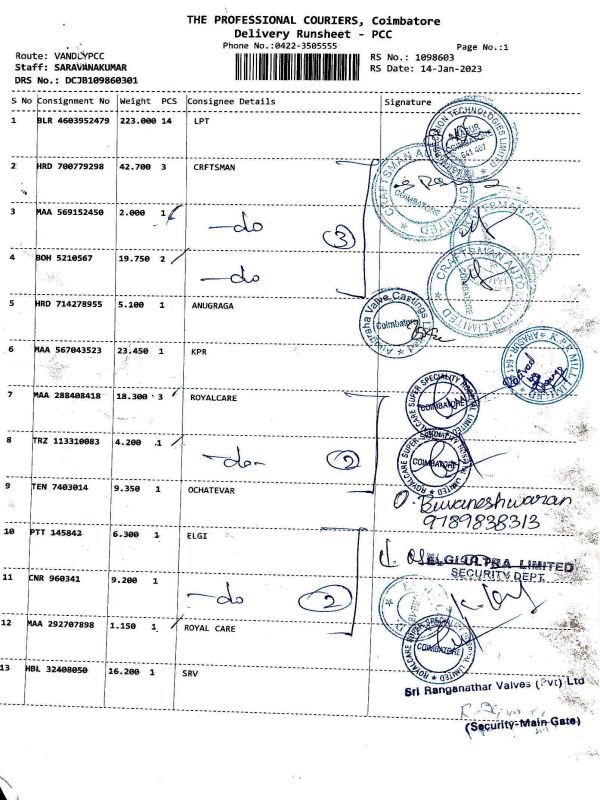 THE PROFESSIONAL COURIERS, Coimbatore
Delivery Runsheet - PCC
Phone No.:0422-3505555
Page No.:1
Route: VANDLYPCC
RS No.: 1098603
Staff: SARAVANAKUMAR
RS Date: 14-Jan-2023
DRS No.: DCJB109860301
S No Consignment No Weight PCS Consignee Details Signature
1 BLR 4603952479 223.000 14 LPT
2 HRD 700779298 42.700 3 CRFTSMAN
3 MAA 569152450 2.000 1 -do 3
4 BOH 5210567 19.750 2 -do
5 HRD 714278955 5.100 1 ANUGRAGA
Anugraha Valve Castings
Coimbatore
6 MAA 567043523 23.450 1 KPR
7 MAA 288408418 18.300 3 ROYALCARE
ROYALCARE SUPER SPECIALITY HOSPITAL LIMITED
COIMBATORE
8 TRZ 113310083 4.200 1 -do- 2
ROYALCARE SUPER SPECIALITY HOSPITAL LIMITED
COIMBATORE
9 TEN 7403014 9.350 1 OCHATEVAR
O. Buvaneshwaran
9789838313
10 PTT 145842 6.300 1 ELGI
ELGI ULTRA LIMITED
SECURITY DEPT.
11 CNR 960341 9.200 1 -do 2
12 MAA 292707898 1.150 1 ROYAL CARE
COIMBATORE
13 HBL 32408050 16.200 1 SRV
Sri Ranganathar Valves (Pvt) Ltd
(Security-Main Gate)